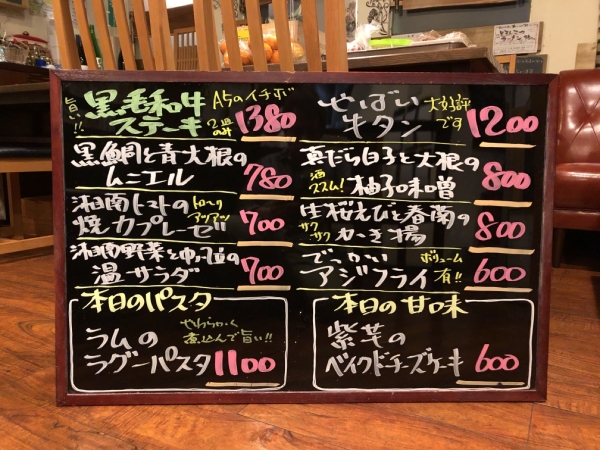 旨い!!
黒毛和牛
ステーキ
A5のイチボ
2組のみ
1380
黒鯛と青大根の
ムニエル
780
湘南トマトの
焼カプレーゼ
トローリ
アツアツ
700
湘南野菜と
温サラダ
700
本日のパスタ
ラムの
ラグーパスタ
やわらかく
煮込んで旨い!!
1100
やばい
牛タン
大好評
です
1200
真だら白子と大根の
酒ススム!
柚子味噌
800
生桜えびと春菊の
サクサク
かき揚
800
でっかい
アジフライ
ボリューム
有!!
600
本日の甘味
紫芋の
ベイクドチーズケーキ
600